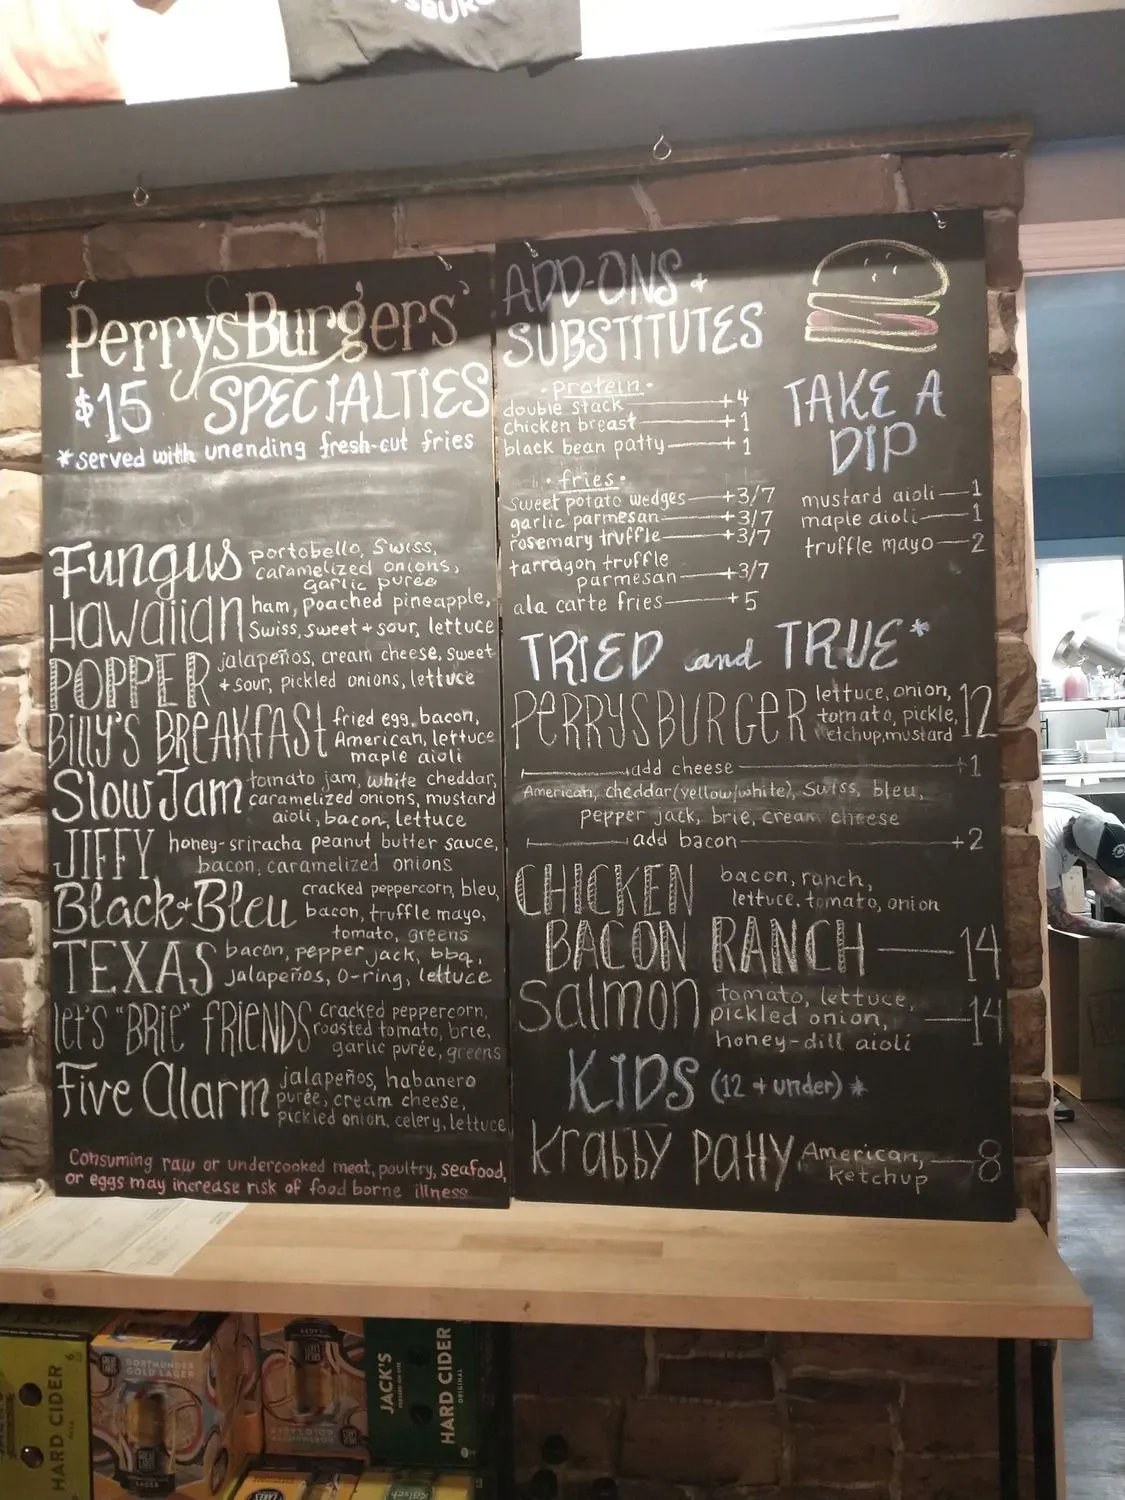 PerrysBurgers
$15 SPECIALTIES
*served with unending fresh-cut fries
Fungus portobello, Swiss,
caramelized onions,
garlic purée
Hawaiian ham, poached pineapple,
Swiss, sweet + sour, lettuce
POPPER jalapeños, cream cheese, sweet
+ sour, pickled onions, lettuce
Billy's Breakfast fried egg, bacon,
American, lettuce
maple aioli
Slow Jam tomato jam, white cheddar,
caramelized onions, mustard
aioli, bacon, lettuce
JIFFY honey-sriracha peanut butter sauce,
bacon, caramelized onions
Black+Bleu cracked peppercorn, bleu,
bacon, truffle mayo,
tomato, greens
TEXAS bacon, pepper jack, bbq,
jalapeños, O-ring, lettuce
let's "BRIE" FRIENDS cracked peppercorn,
roasted tomato, brie,
garlic purée, greens
Five Alarm jalapeños, habanero
purée, cream cheese,
pickled onion, celery, lettuce
Consuming raw or undercooked meat, poultry, seafood,
or eggs may increase risk of food borne illness
ADD-ONS +
SUBSTITUTES
• protein •
double stack +4
chicken breast +1
black bean patty +1
• fries •
sweet potato wedges +3/7
garlic parmesan +3/7
rosemary truffle +3/7
tarragon truffle
parmesan +3/7
ala carte fries +5
TAKE A
DIP
mustard aioli 1
maple aioli 1
truffle mayo 2
TRIED and TRUE*
PERRYSBURGER lettuce, onion,
tomato, pickle,
ketchup, mustard 12
add cheese +1
American, cheddar (yellow/white), Swiss, bleu,
pepper jack, brie, cream cheese
add bacon +2
CHICKEN bacon, ranch,
lettuce, tomato, onion
BACON RANCH 14
Salmon tomato, lettuce,
pickled onion, 14
honey-dill aioli
KIDS (12 + under) *
Krabby Patty American, 8
ketchup
HARD CIDER
DORTMUNDER
GOLD LAGER
GREAT
LAKES
LAGER
JACK'S
HARD CIDER
ORIGINAL